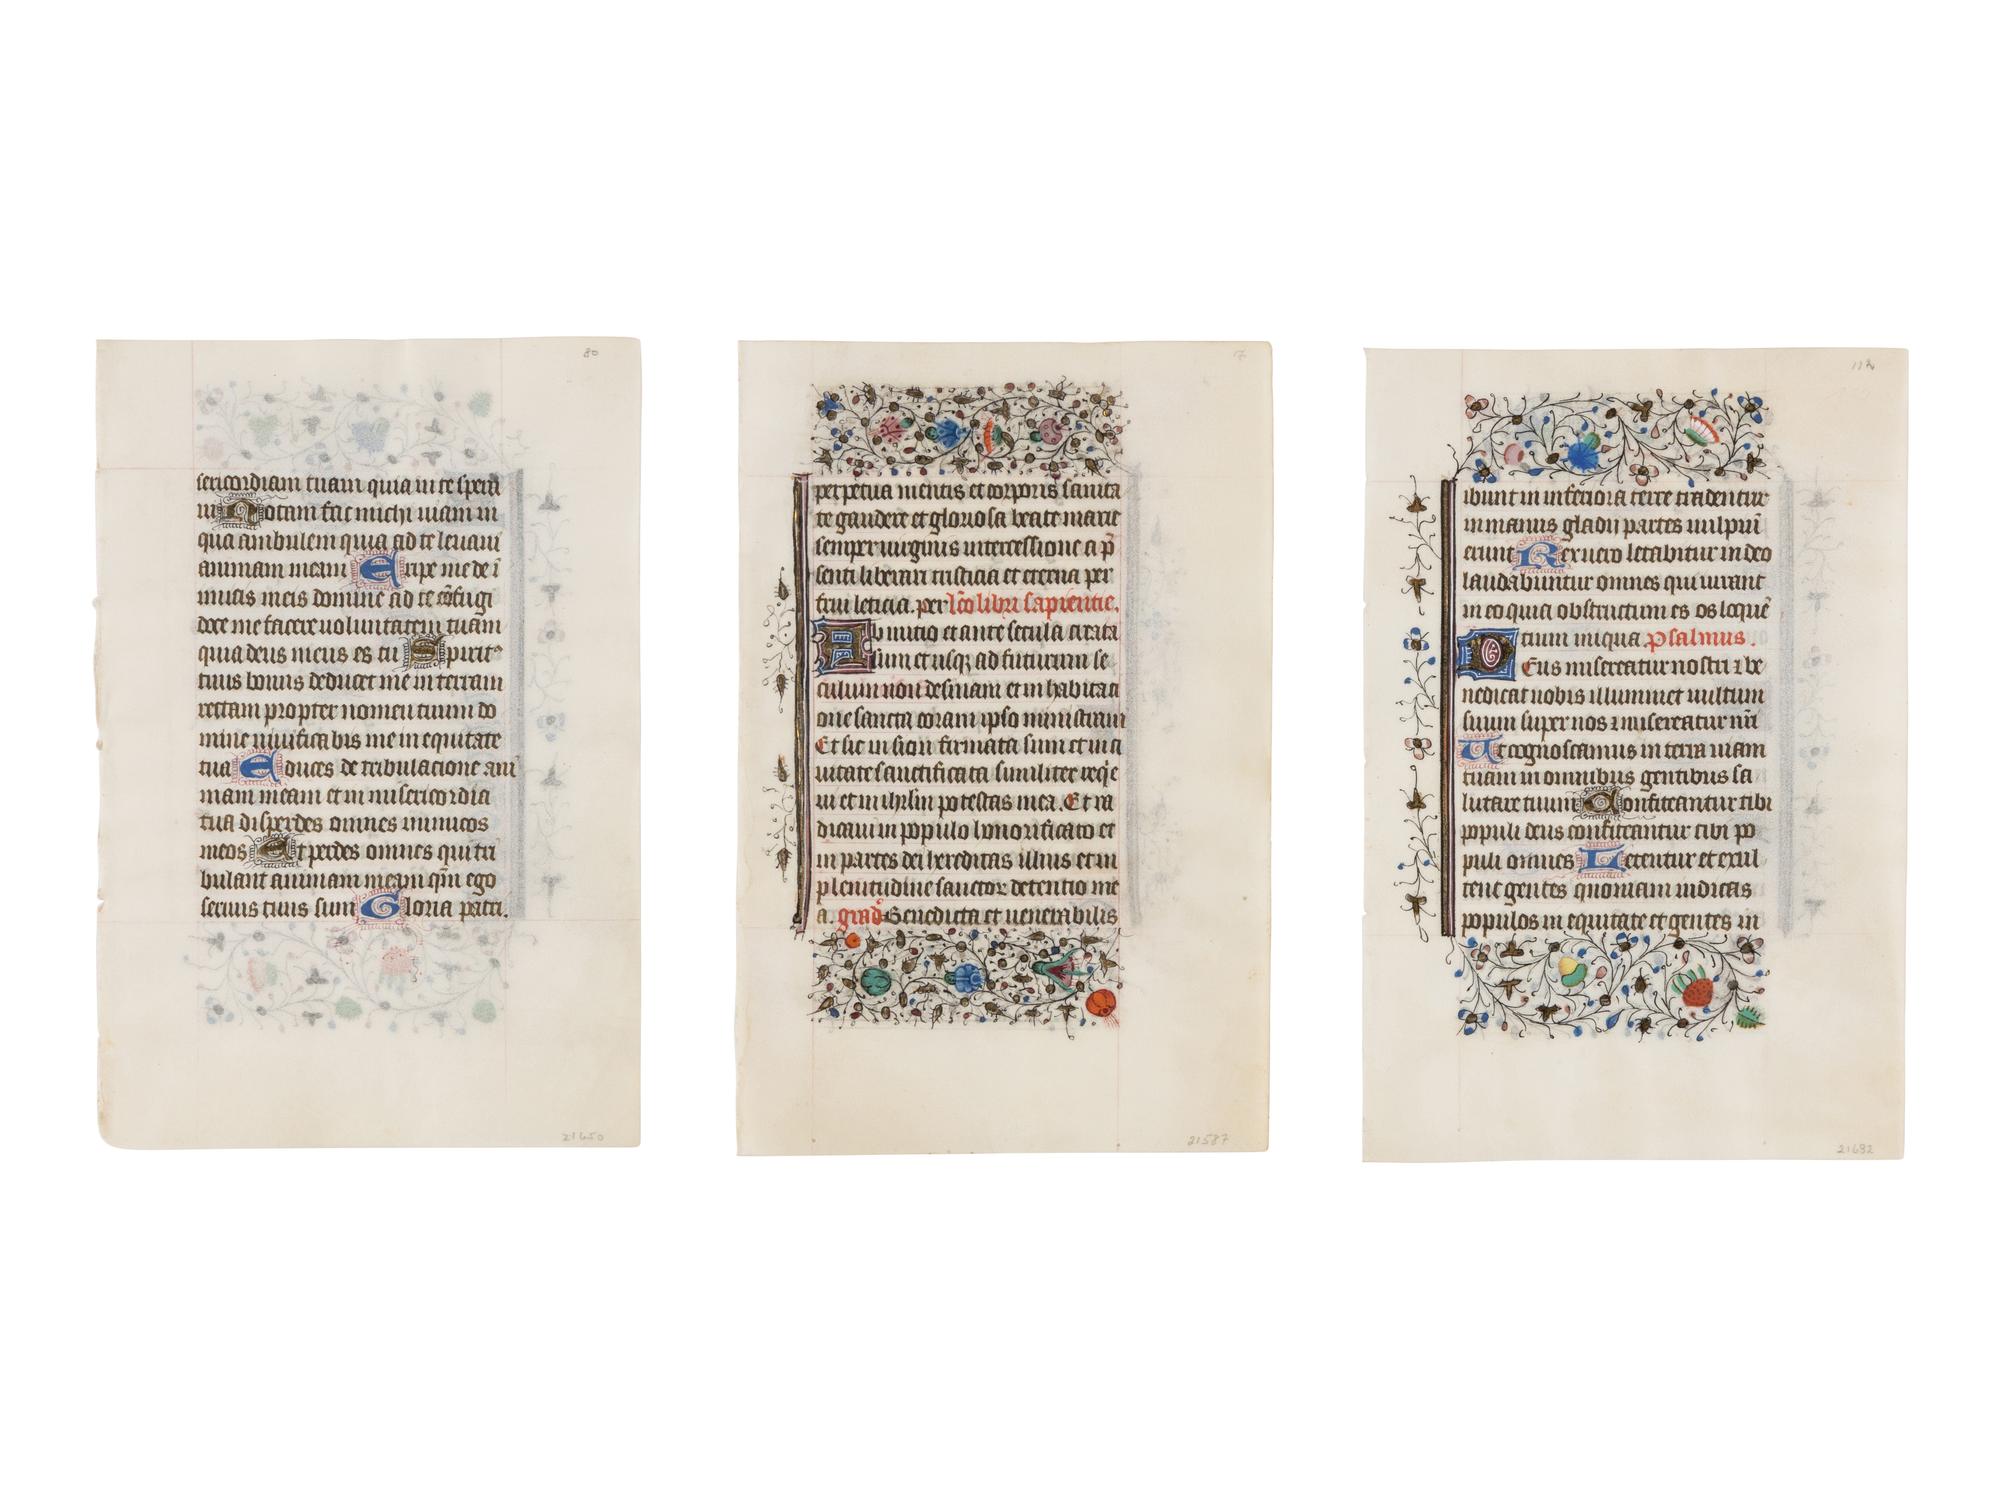 80
sericordiam tuam quia in te spera
ui Notam fac michi uiam in
qua ambulem quia ad te leuaui
animam meam Eripe me de i
micis meis domine ad te cōfugi
doce me facere uoluntatem tuam
quia deus meus es tu Spirit⁹
tuus bonus deducet me in terram
rectam propter nomen tuum do
mine uiuificabis me in equitate
tua Educes de tribulacione ani
mam meam et in misericordia
tua disperdes omnes inimicos
meos Et perdes omnes qui tri
bulant animam meam qm̄ ego
seruus tuus sum Gloria patri.
21650
7
perpetua mentis et corporis sanita
te gaudere et gloriosa beate marie
semper uirginis intercessione a p̄
senti liberari tristicia et eterna per
frui leticia. per lc̄o libri sapientie.
Ab initio et ante secula creata
sum et usq; ad futurum se
culum non desinam et in habitati
one sancta coram ipso ministraui
Et sic in sion firmata sum et in ci
uitate sanctificata similiter reqͥe
ui et in ihrlm potestas mea. Et ra
dicaui in populo honorificato et
in partes dei hereditas illius et in
plenitudine sanctor detentio me
a. grad Benedicta et uenerabilis
21587
112
ibunt in inferiora terre tradentur
in manus gladii partes uulpiū
erunt Rex uero letabitur in deo
laudabuntur omnes qui iurant
in eo quia obstructum es os loquē
tium iniqua Psalmus.
Deus misereatur nostri ⁊ be
nedicat nobis illuminet uultum
suum super nos ⁊ misereatur nr̄i
Ut cognoscamus in terra uiam
tuam in omnibus gentibus sa
lutare tuum Confiteantur tibi
populi deus confiteantur tibi po
puli omnes Letentur et exul
tent gentes quoniam iudicas
populos in equitate et gentes in
21692